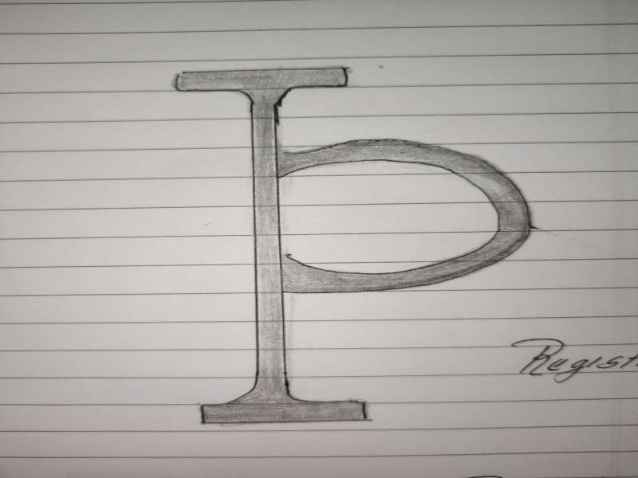 Þ
Regist